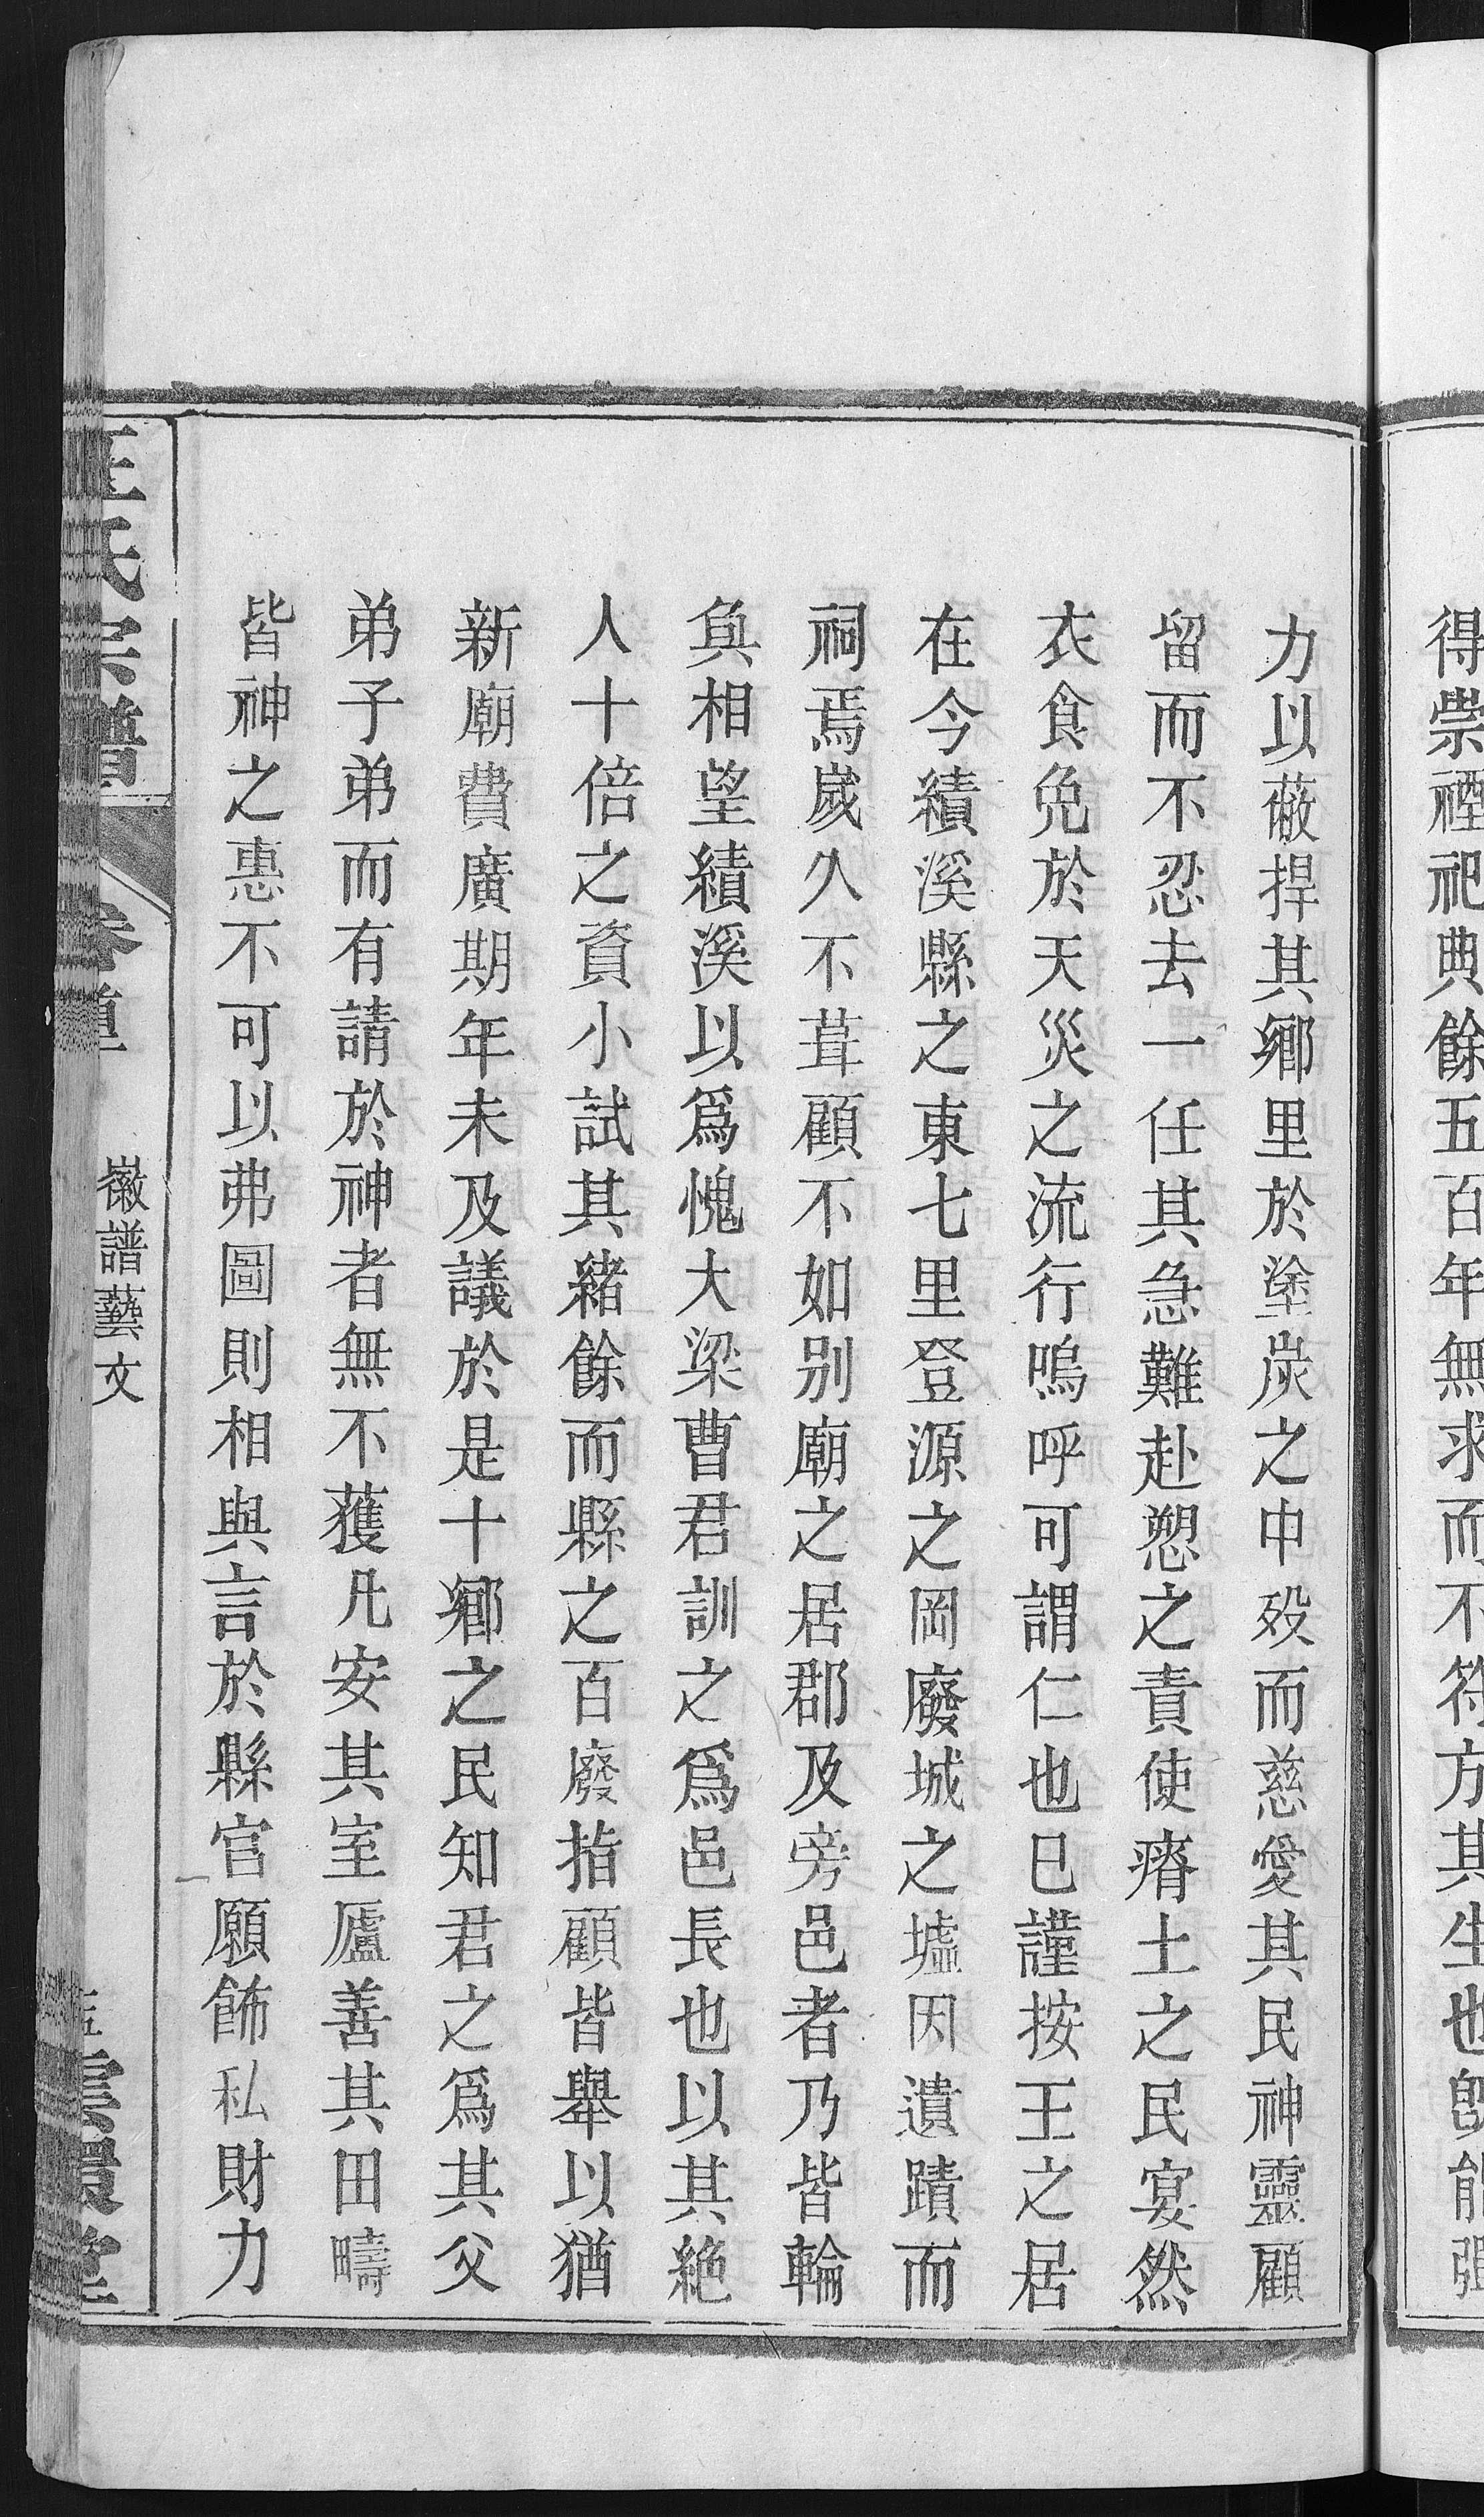 得崇禋祀典餘五百年無求而不符方其生也既能彊
力以蔽捍其鄉里於塗炭之中歿而慈愛其民神靈顧
留而不忍去一任其急難赴愬之責使瘠土之民宴然
衣食免於天災之流行嗚呼可謂仁也已謹按王之居
在今績溪縣之東七里登源之岡廢城之墟因遺蹟而
祠焉歲久不葺顧不如别廟之居郡及旁邑者乃皆輪
奐相望績溪以爲愧大梁曹君訓之爲邑長也以其絶
人十倍之資小試其緒餘而縣之百廢指顧皆舉以猶
新廟費廣期年未及議於是十鄉之民知君之爲其父
弟子弟而有請於神者無不獲凡安其室廬善其田疇
皆神之惠不可以弗圖則相與言於縣官願飾私財力
汪氏宗譜
徽譜藝文